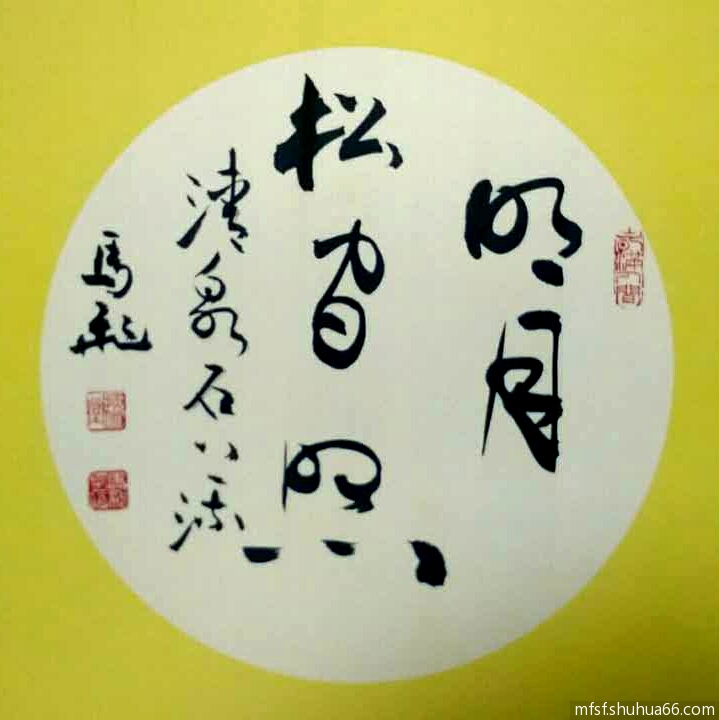 明月
松間照
清泉石上流
馬
mfsf.shuhua66.com